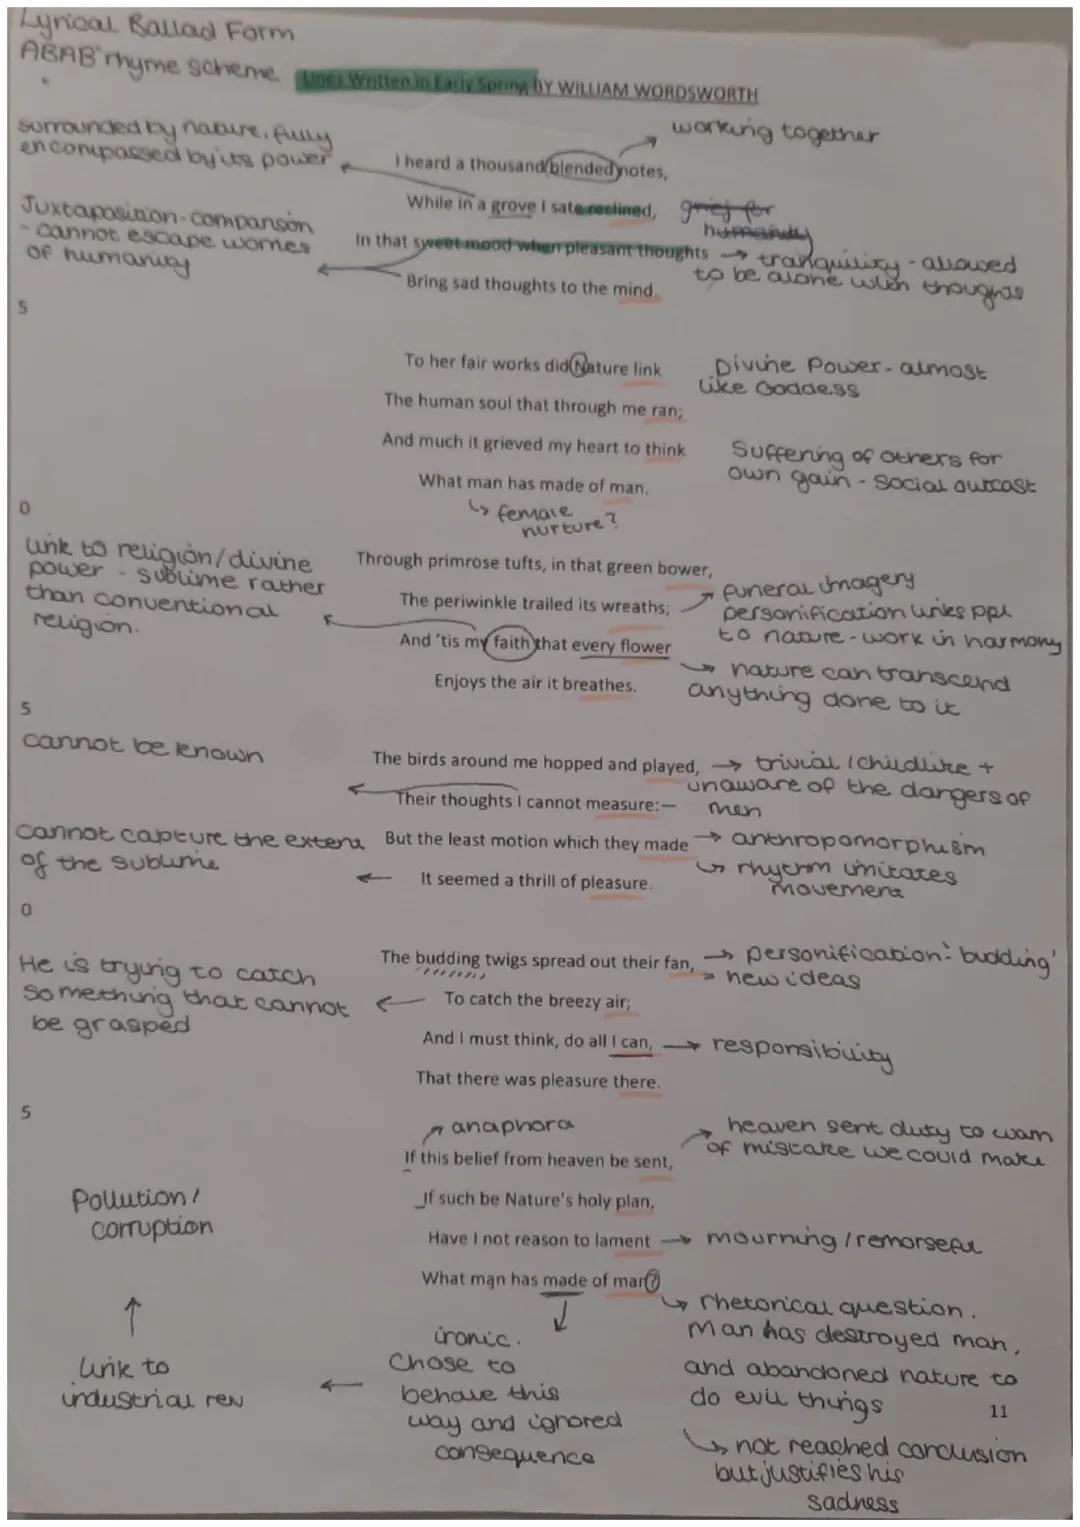 Lyrical Ballad Form
ABAB rhyme scheme
Lines Written in Early Spring BY WILLIAM WORDSWORTH
working together
surrounded by nature, fully
encompassed by its power
I heard a thousand blended notes,
While in a grove I sate reclined,
grief for
humanity
Juxtaposition - comparison
- cannot escape worries
of humanity
In that sweet mood when pleasant thoughts
tranquility - allowed
to be alone with thoughts
Bring sad thoughts to the mind.
5
To her fair works did Nature link
Divine Power - almost
like Goddess
The human soul that through me ran;
And much it grieved my heart to think
Suffering of others for
own gain - social outcast
What man has made of man.
female
nurture?
0
link to religion/divine
power - sublime rather
than conventional
religion.
Through primrose tufts, in that green bower,
The periwinkle trailed its wreaths;
funeral imagery
personification links ppl
to nature - work in harmony
And 'tis my faith that every flower
nature can transcend
anything done to it
Enjoys the air it breathes.
5
cannot be known
The birds around me hopped and played,
trivial / childlike +
unaware of the dangers of
men
Their thoughts I cannot measure:—
cannot capture the extent
of the sublime
But the least motion which they made
anthropomorphism
rhythm imitates
movement
It seemed a thrill of pleasure.
0
The budding twigs spread out their fan,
personification - 'budding'
new ideas
He is trying to catch
something that cannot
be grasped
To catch the breezy air;
And I must think, do all I can,
responsibility
That there was pleasure there.
5
anaphora
heaven sent duty to warn
of mistake we could make
If this belief from heaven be sent,
If such be Nature's holy plan,
Pollution/
corruption
Have I not reason to lament
mourning / remorseful
What man has made of man?
rhetorical question.
Man has destroyed man,
and abandoned nature to
do evil things
ironic.
Chose to
behave this
way and ignored
consequence
link to
industrial rev
11
not reached conclusion
but justifies his
sadness